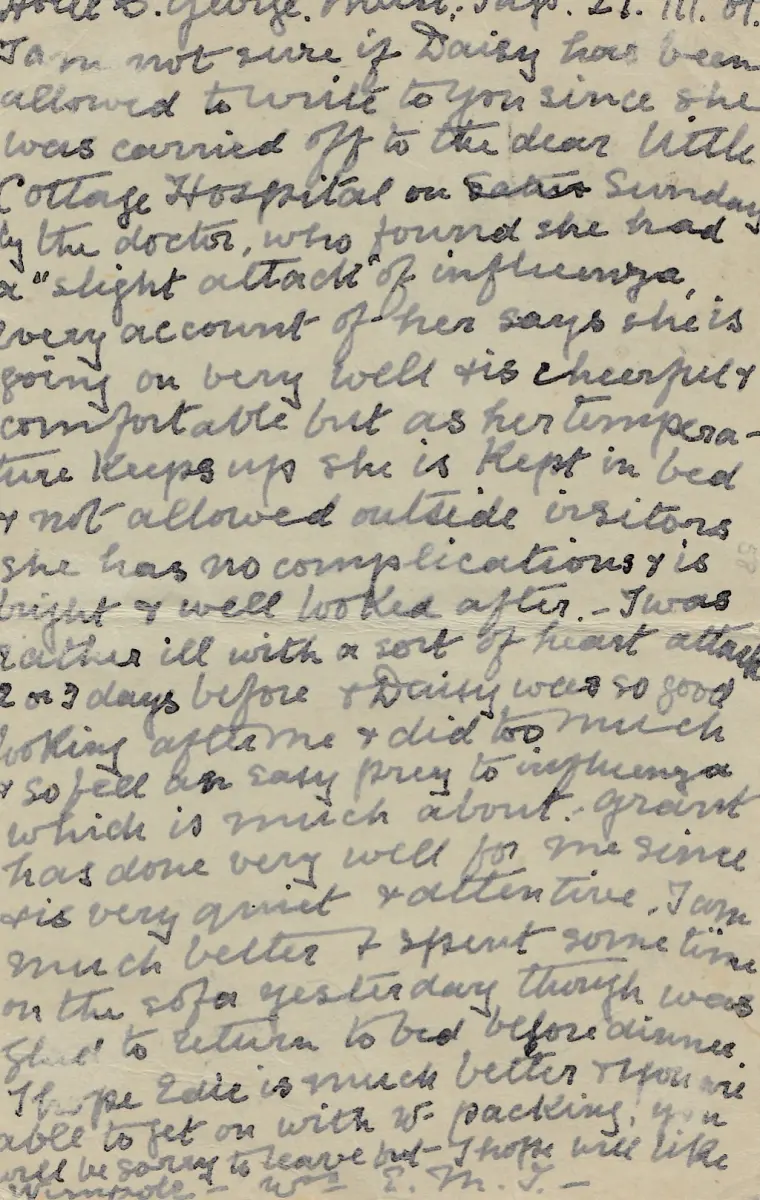 George. Tues.
I am not sure if Daisy has been
allowed to write to you since she
was carried off to the dear little
Cottage Hospital on Satur Sunday
by the doctor, who found she had
a "slight attack" of influenza,
every account of her says she is
going on very well & is cheerful &
comfortable but as her tempera-
ture keeps up she is kept in bed
& not allowed outside visitors
she has no complications & is
bright & well looked after. - I was
rather ill with a sort of heart attack
2 or 3 days before & Daisy was so good
looking after me & did too much
& so fell an easy prey to influenza
which is much about. - Grant
has done very well for me since
& is very quiet & attentive. I am
much better & spent some time
on the sofa yesterday though was
glad to return to bed before dinner
I hope Edie is much better & you are
able to get on with yr packing, you
will be sorry to leave but I hope will like
Wimpole - E. M. T. -